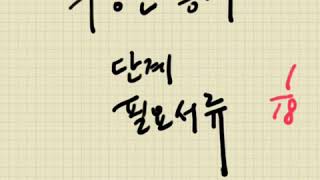 단계
필요서류
1/18